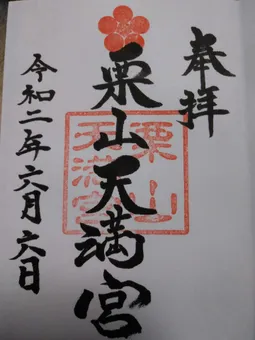 奉拝
栗山天満宮
令和二年六月六日
栗山
天満宮